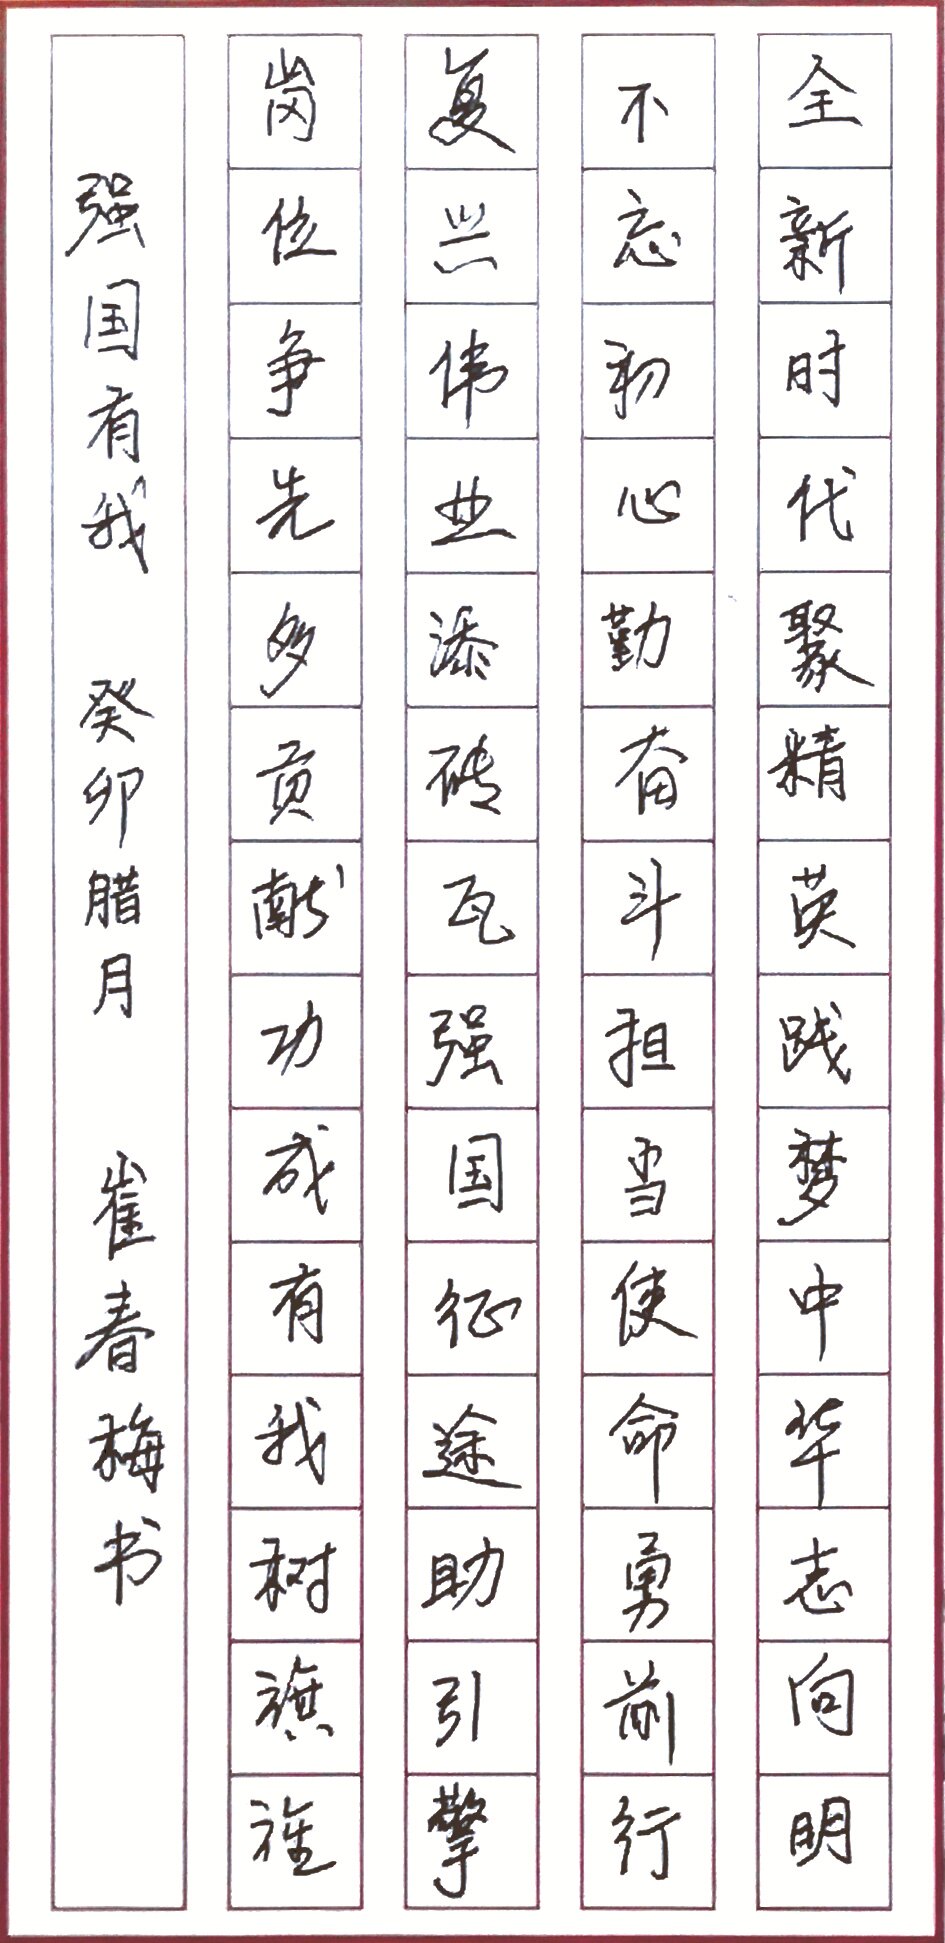 全新时代聚精英践梦中华志向明
不忘初心勤奋斗担当使命勇前行
复兴伟业添砖瓦强国征途助引擎
岗位争先多贡献功成有我树旗旌
强国有我 癸卯腊月 崔春梅书